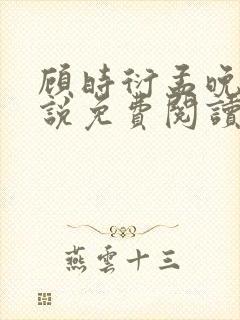 顾時衍孟晚
說免費閱讀
燕雲十三